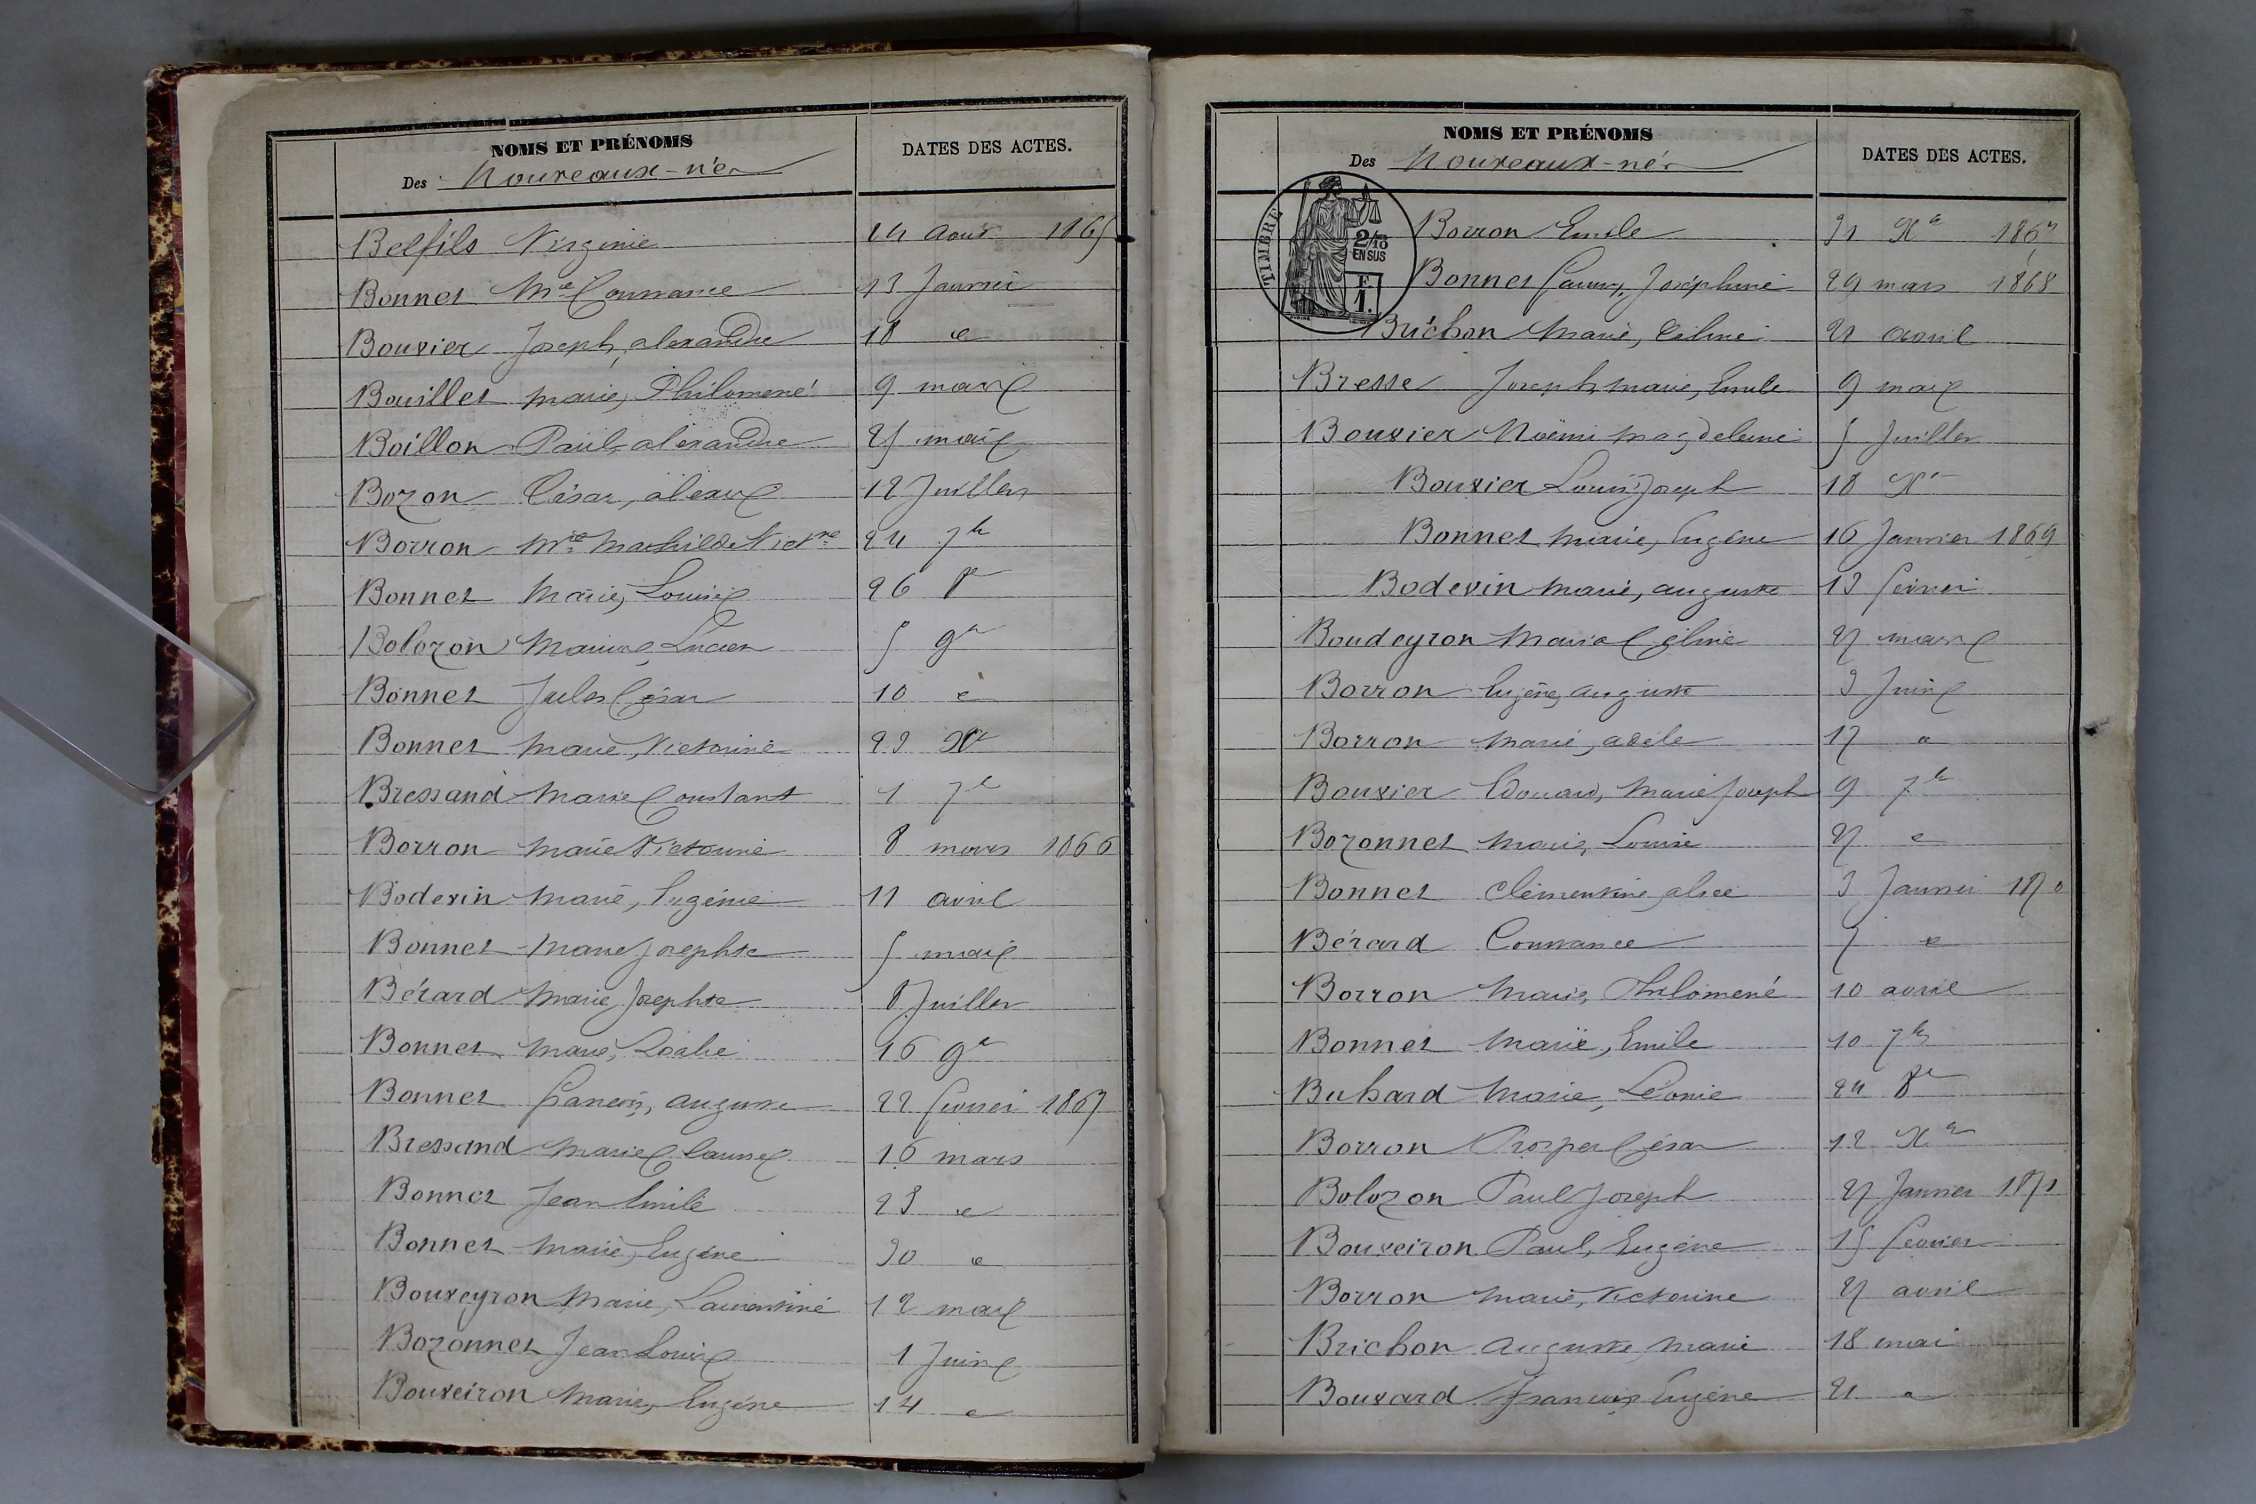 NOMS ET PRÉNOMS
Des Nouveaux-nés
DATES DES ACTES.
Belfils Virginie 24 août 1865
Bonnet Mie Constance 13 Janvier
Bouvier Joseph, alexandre 18 "
Bouillet marie, Philomène 9 mars
Boillon Paul, alexandre 25 mai
Bozon César, alexis 12 Juillet
Borron Mie Mathilde Vict.ne 24 7bre
Bonnet Marie, Louise 26 8bre
Bolozon Marius, Lucien 5 9bre
Bonnet Jules César 10 "
Bonnet Marie, Victorine 23 Xbre
Bressand Marie Constant 1 7bre
Borron Marie Victorine 8 mars 1866
Bodevin Marie, Eugénie 11 avril
Bonnet Marie Josephte 5 mai
Bérard Marie Josephte 8 Juillet
Bonnet Marie, 16 9bre
Bonnet François, auguste 22 février 1867
Bressand Marie 16 mars
Bonnet Jean Emile 23 "
Bonnet Marie, Eugène 30 "
Bouveyron Marie, Laurentine 12 mai
Bozonnet Jean Louis 1 Juin
Bouveiron Marie, Eugène 14 "
NOMS ET PRÉNOMS
Des Nouveaux-nés
DATES DES ACTES.
TIMBRE
2/10
EN SUS
F.
1.
Borron Emile 31 Xbre 1867
Bonnet Fanny, Joséphine 29 mars 1868
Brichon Marie, Céline 21 avril
Bresse Joseph, marie, Emile 9 mai
Bouvier Noëmi Magdeleine 5 Juillet
Bouvier Louis Joseph 18 Xbre
Bonnet Marie, Eugène 16 Janvier 1869
Bodevin Marie, auguste 13 février
Boudeyron Maria Céline 27 mars
Borron Eugène, auguste 3 Juin
Borron Marie, adèle 17 "
Bouvier Edouard, Marie Joseph 9 7bre
Bozonnet Marie, Louise 27 "
Bonnet Clémentine, alice 3 Janvier 1870
Bérard Constance 7 "
Borron Marie, Philomène 10 avril
Bonnet Marie, Emile 10 7bre
Buhard Marie, Léonie 24 8bre
Borron Prosper César 12 Xbre
Bolozon Paul Joseph 27 Janvier 1871
Bouveiron Paul, Eugène 15 février
Borron Marie, Victorine 27 avril
Brichon Auguste, Marie 18 mai
Bouvard François Eugène 21 "